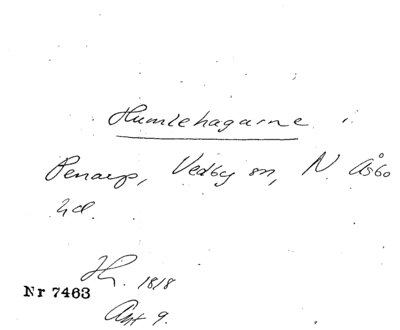 Humlehagarne i
Penarp, Vedby sn, N. Åsbo
hd.
1818
Nr 7463
Akt 9.